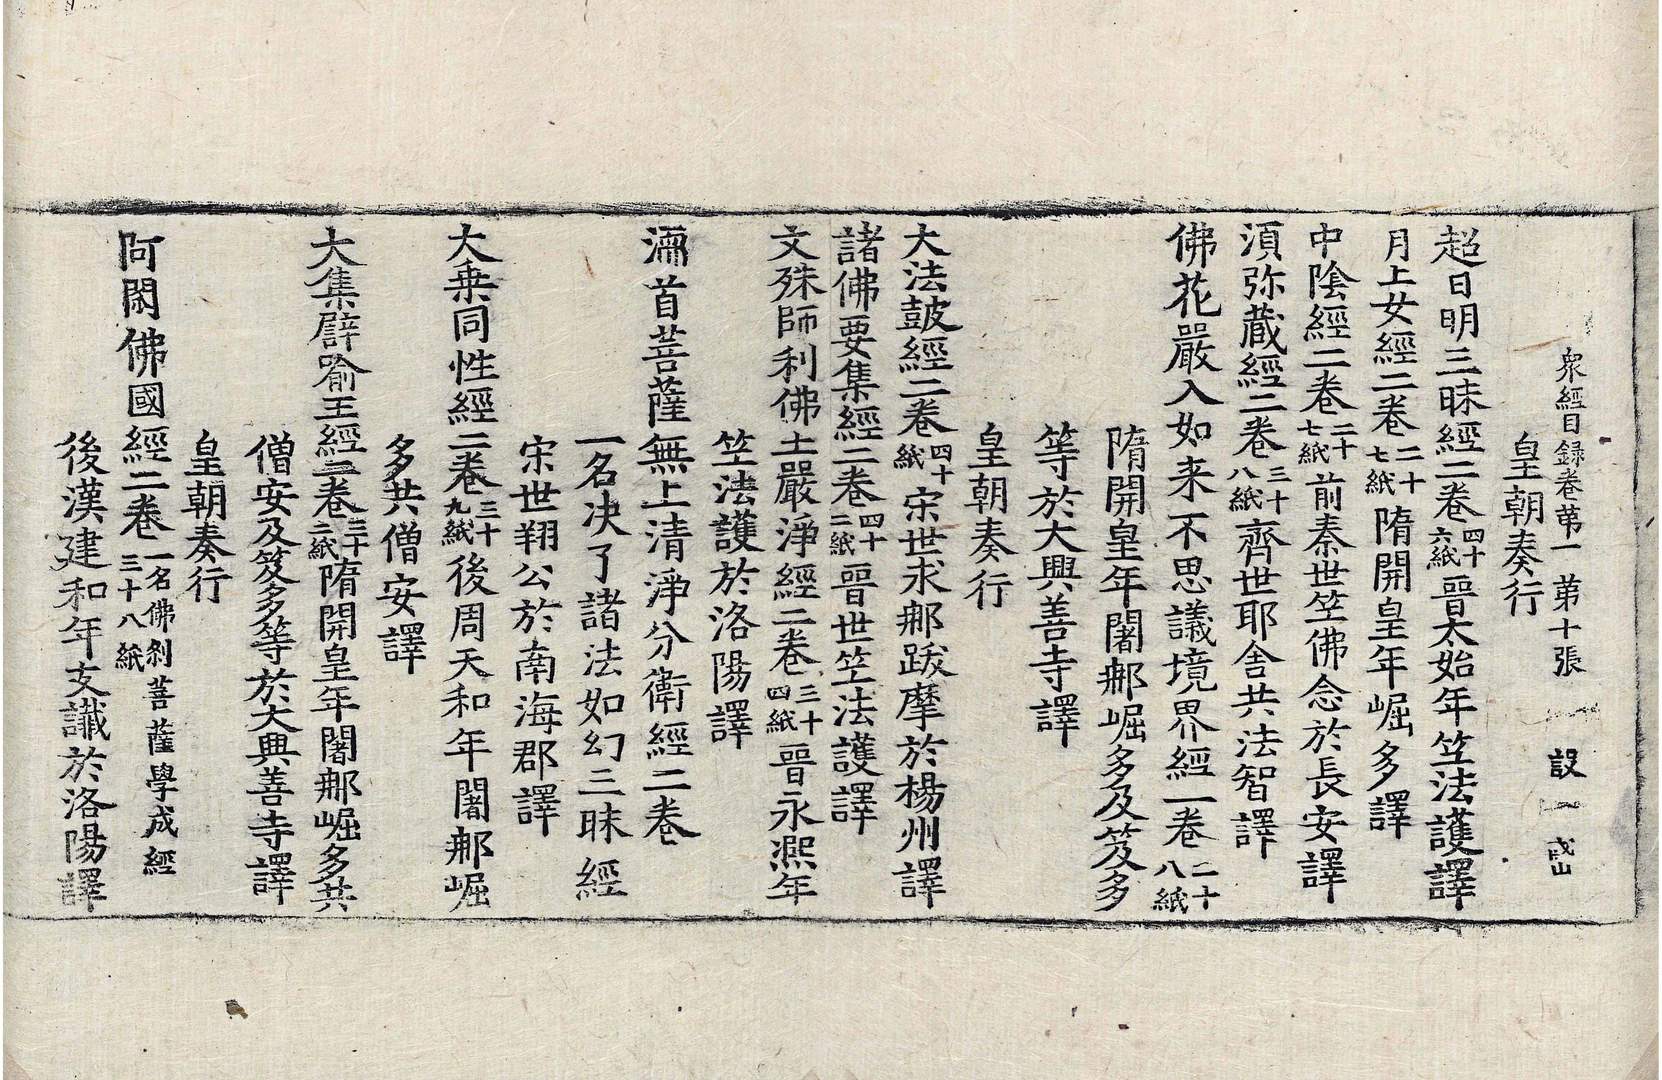 衆經目錄卷第一 第十張 設
皇朝奏行
超日明三昧經二卷四十六紙晉太始年竺法護譯
月上女經二卷二十七紙隋開皇年崛多譯
中陰經二卷二十七紙前秦世竺佛念於長安譯
須弥藏經二卷三十八紙齊世耶舍共法智譯
佛花嚴入如来不思議境界經一卷二十八紙
隋開皇年闍郍崛多及笈多
等於大興善寺譯
皇朝奏行
大法鼓經二卷四十紙宋世求郍跋摩於楊州譯
諸佛要集經二卷四十二紙晉世竺法護譯
文殊師利佛土嚴淨經二卷三十四紙晉永凞年
竺法護於洛陽譯
濡首菩薩無上清淨分衛經二卷
一名决了諸法如幻三昧經
宋世翔公於南海郡譯
大乗同性經二卷三十九紙後周天和年闍郍崛
多共僧安譯
大集譬喻王經二卷三十二紙隋開皇年闍郍崛多共
僧安及笈多等於大興善寺譯
皇朝奏行
阿閦佛國經二卷一名佛刹菩薩學成經三十八紙
後漢建和年支讖於洛陽譯